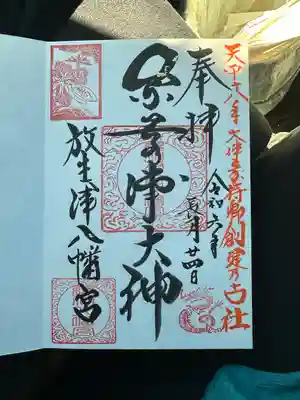 天平十八年大伴家持卿創建乃古社
奉拝
令和六年
月廿四日
大神
放生津八幡宮